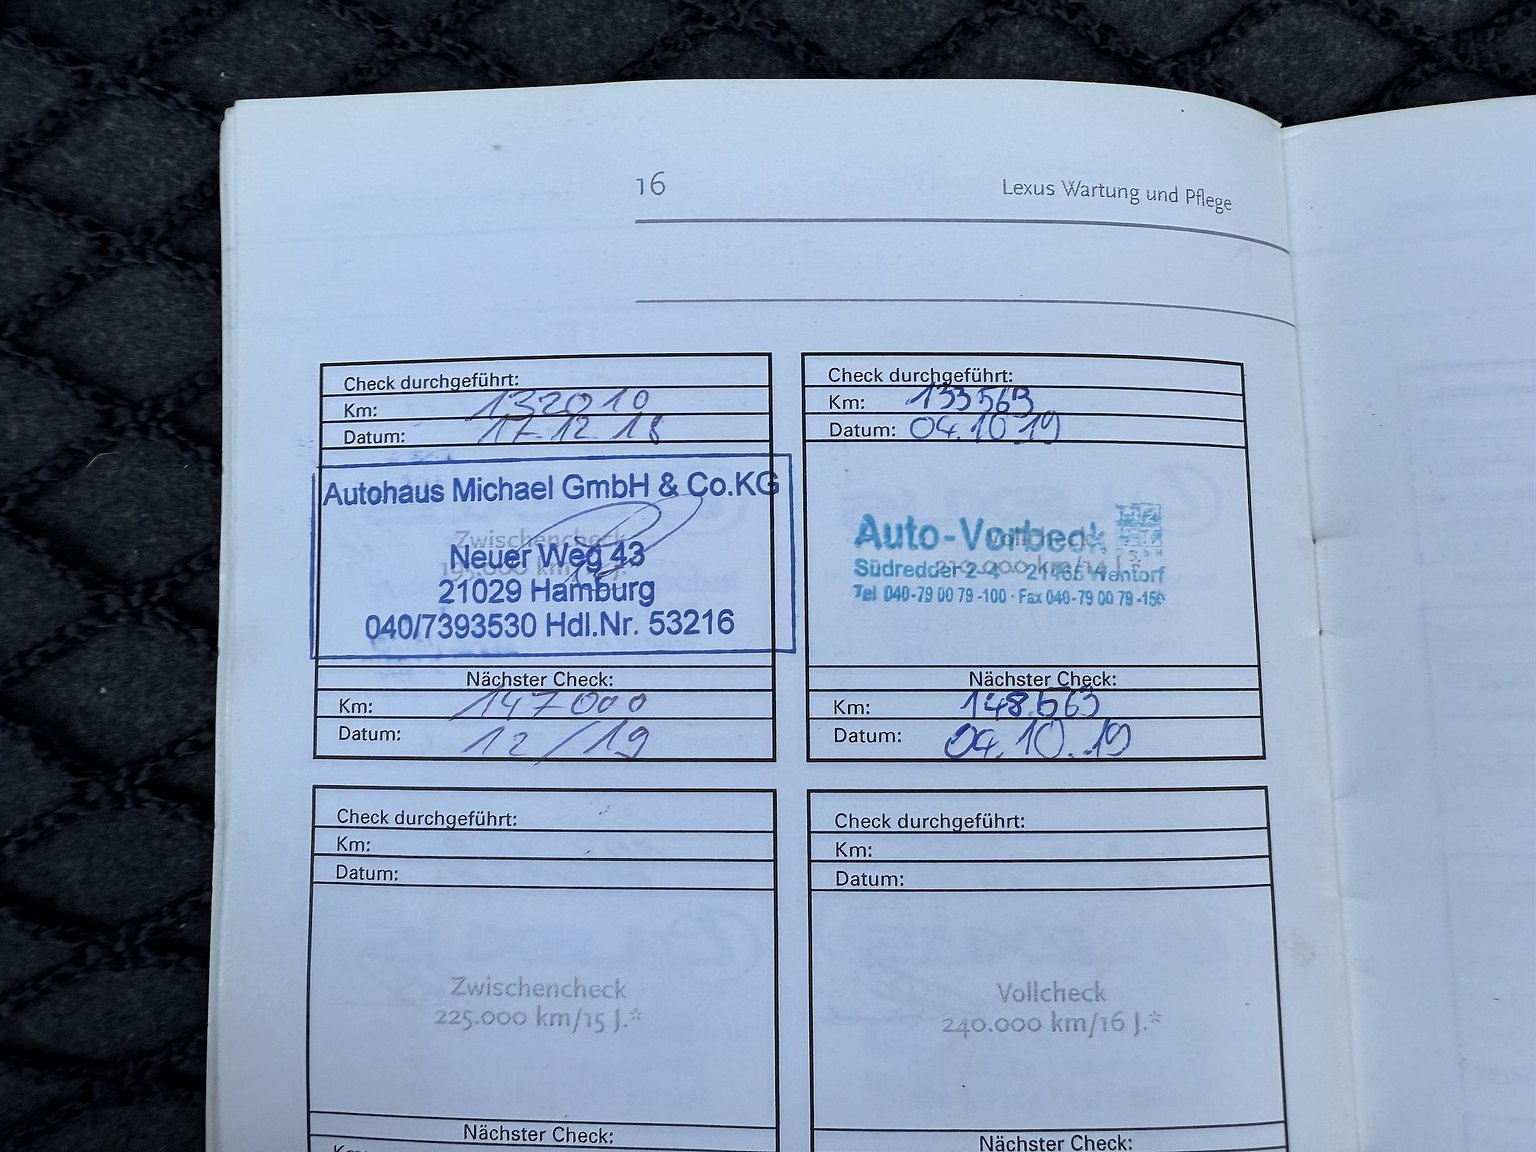 16
Lexus Wartung und Pflege
Check durchgeführt:
Km: 132010
Datum: 17.12.18
Autohaus Michael GmbH & Co.KG
Zwischencheck
Neuer Weg 43
195.000 km/13 J.*
21029 Hamburg
040/7393530 Hdl.Nr. 53216
Nächster Check:
Km: 147000
Datum: 12/19
Check durchgeführt:
Km: 133563
Datum: 04.10.19
Auto-Vorbeck
Vollcheck
Südredder 2-4 · 21465 Wentorf
210.000 km/14 J.*
Tel 040-79 00 79 -100 · Fax 040-79 00 79 -150
Nächster Check:
Km: 148.563
Datum: 04.10.19
Check durchgeführt:
Km:
Datum:
Zwischencheck
225.000 km/15 J.*
Nächster Check:
Km:
Check durchgeführt:
Km:
Datum:
Vollcheck
240.000 km/16 J.*
Nächster Check: